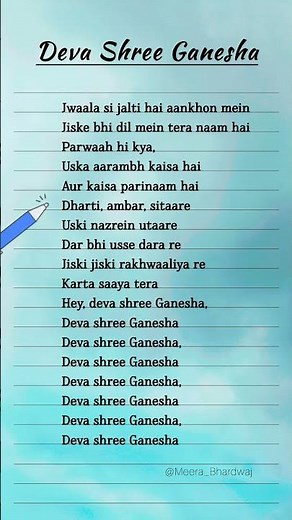 Deva Shree Ganesha
Jwaala si jalti hai aankhon mein
Jiske bhi dil mein tera naam hai
Parwaah hi kya,
Uska aarambh kaisa hai
Aur kaisa parinaam hai
Dharti, ambar, sitaare
Uski nazrein utaare
Dar bhi usse dara re
Jiski jiski rakhwaaliya re
Karta saaya tera
Hey, deva shree Ganesha,
Deva shree Ganesha
Deva shree Ganesha,
Deva shree Ganesha
Deva shree Ganesha,
Deva shree Ganesha
Deva shree Ganesha,
Deva shree Ganesha
@Meera_Bhardwaj